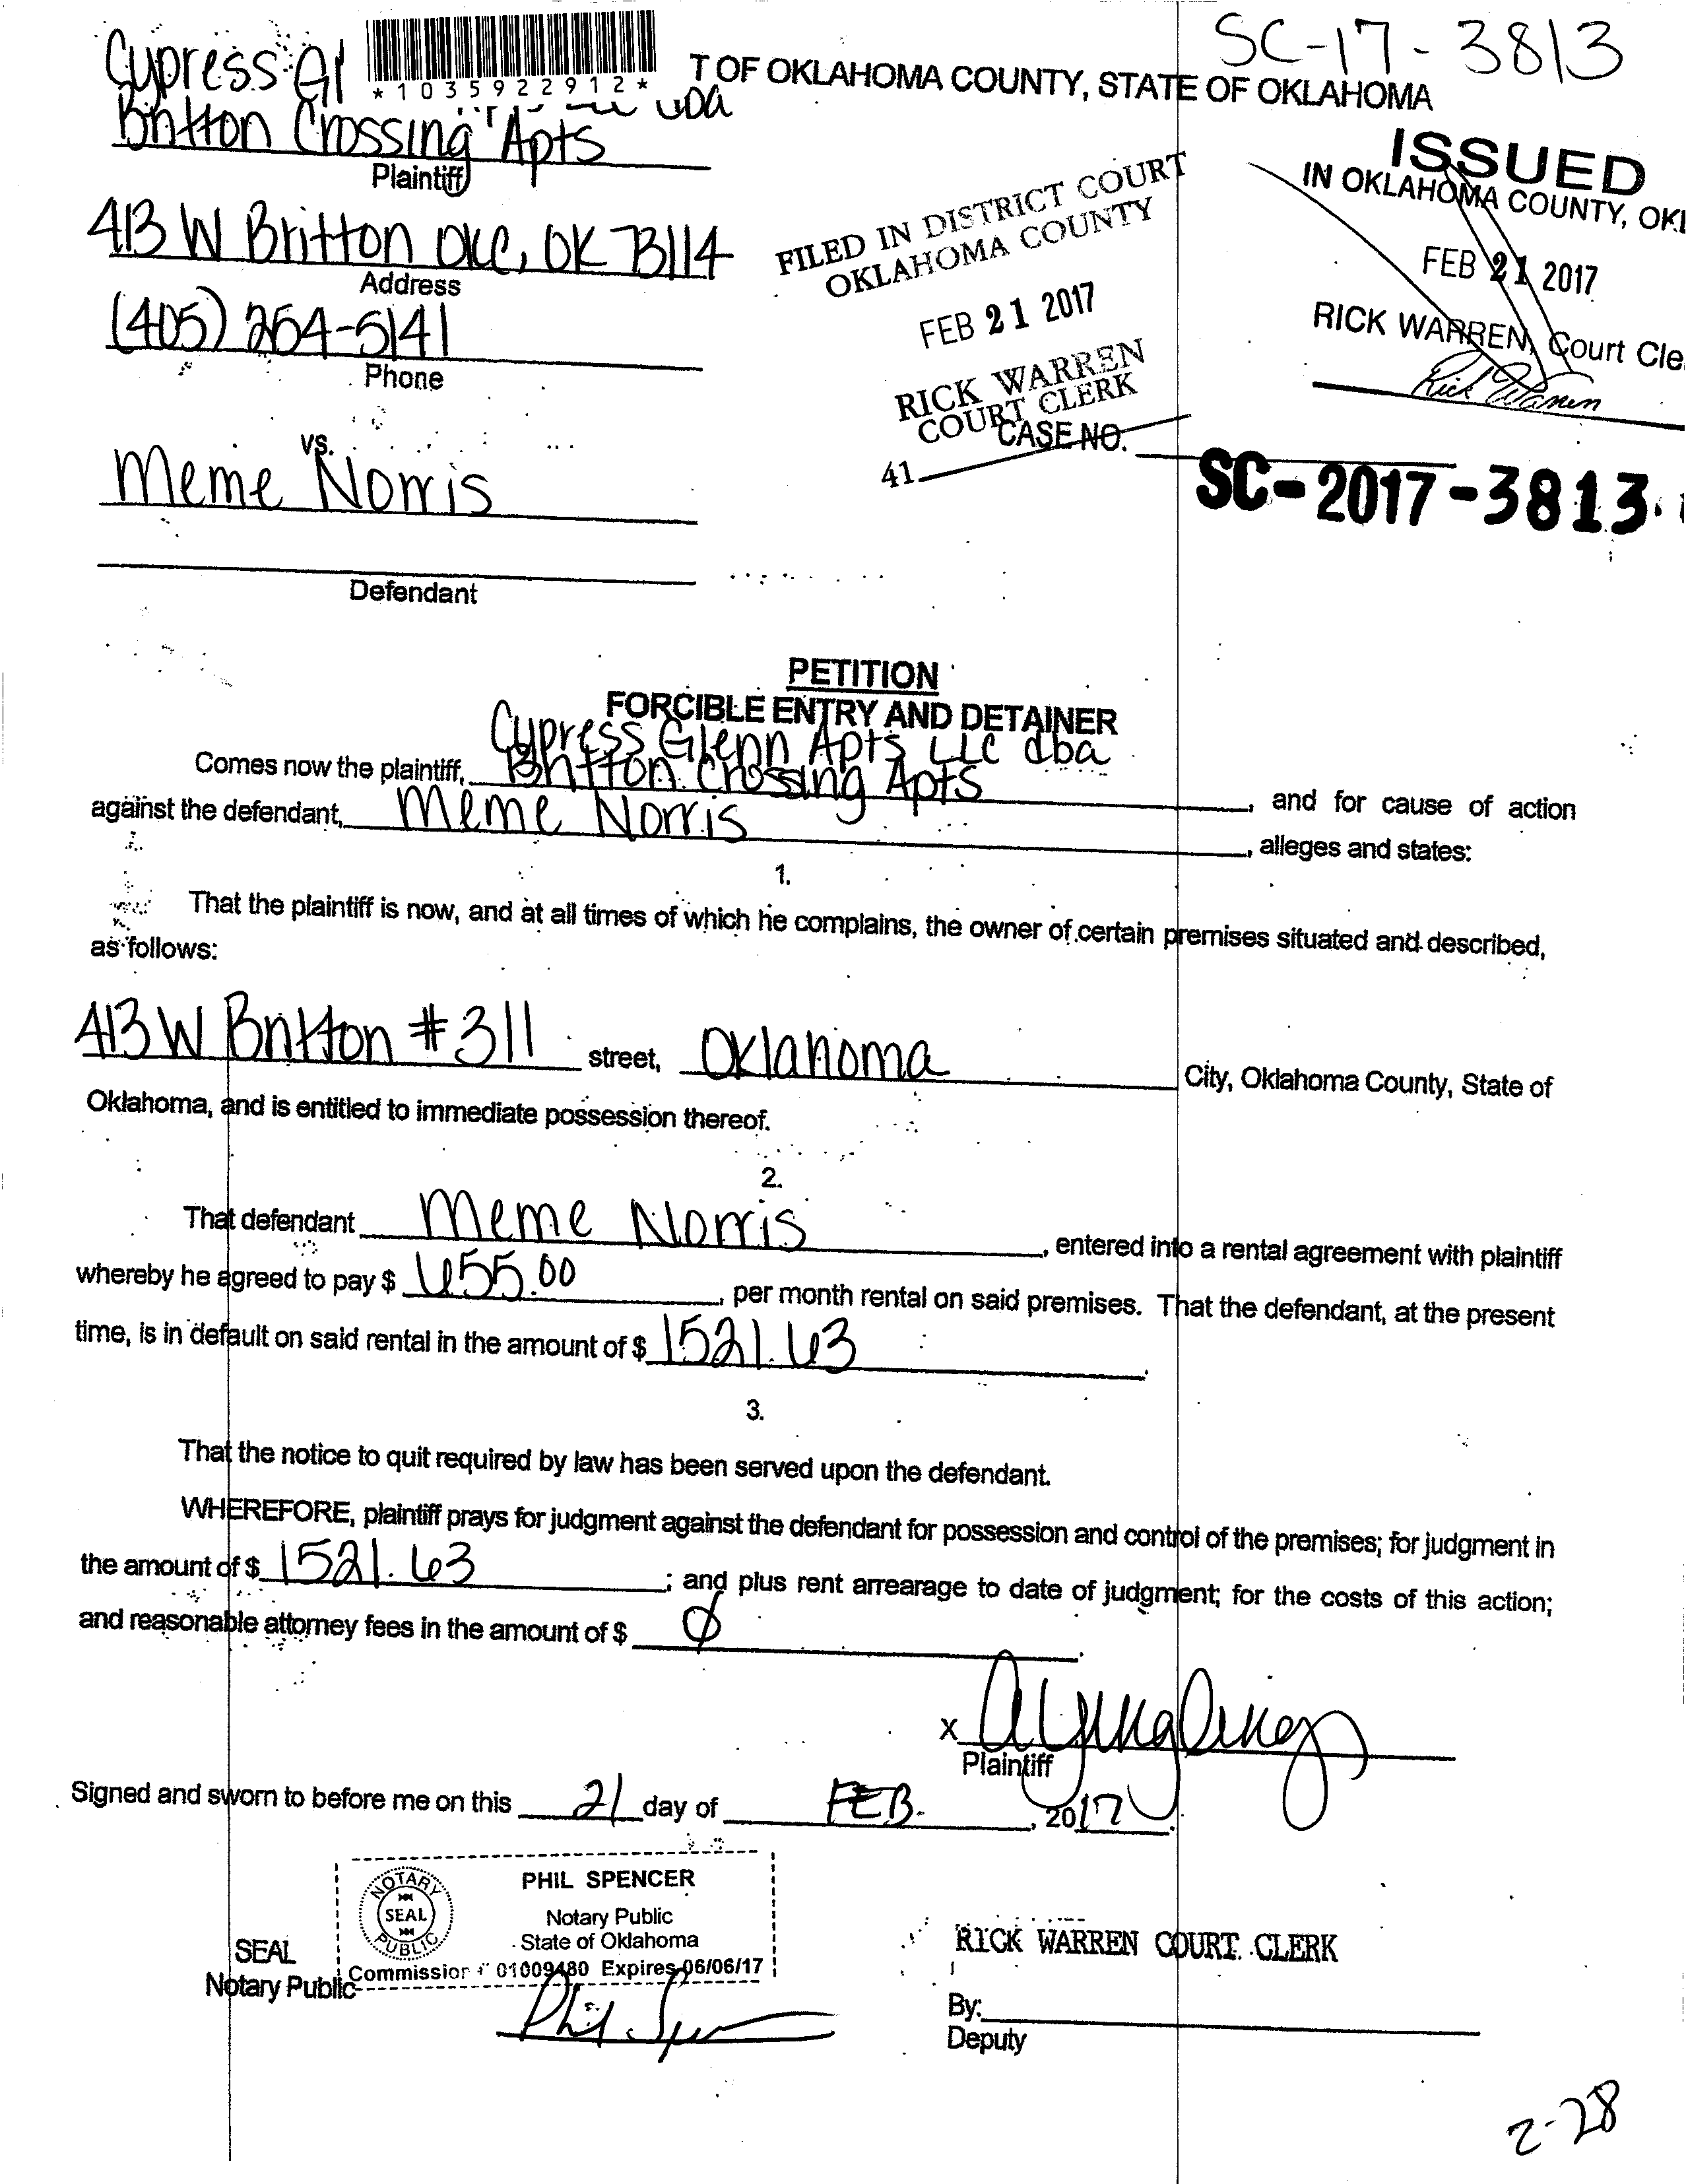 SC-17-3813
Cypress Gl
*1035922912*
T OF OKLAHOMA COUNTY, STATE OF OKLAHOMA
dba
Britton Crossing Apts
Plaintiff
ISSUED
IN OKLAHOMA COUNTY, OKL
413 W Britton OKC, OK 73114
Address
FILED IN DISTRICT COURT
OKLAHOMA COUNTY
FEB 21 2017
FEB 21 2017
(405) 254-5141
Phone
RICK WARREN, Court Cle
Rick Warren
RICK WARREN
COURT CLERK
CASE NO.
41
SC-2017-3813
vs.
Meme Norris
Defendant
PETITION
FORCIBLE ENTRY AND DETAINER
Cypress Glenn Apts LLC dba
Comes now the plaintiff, Britton Crossing Apts, and for cause of action
against the defendant, Meme Norris, alleges and states:
1.
That the plaintiff is now, and at all times of which he complains, the owner of certain premises situated and described,
as follows:
413 W Britton #311 street, Oklahoma City, Oklahoma County, State of
Oklahoma, and is entitled to immediate possession thereof.
2.
That defendant Meme Norris, entered into a rental agreement with plaintiff
whereby he agreed to pay $ 655.00, per month rental on said premises. That the defendant, at the present
time, is in default on said rental in the amount of $ 1521.63.
3.
That the notice to quit required by law has been served upon the defendant.
WHEREFORE, plaintiff prays for judgment against the defendant for possession and control of the premises; for judgment in
the amount of $ 1521.63; and plus rent arrearage to date of judgment; for the costs of this action;
and reasonable attorney fees in the amount of $ Ø.
X
Plaintiff
Signed and sworn to before me on this 21 day of FEB., 2017.
NOTARY
SEAL
PUBLIC
PHIL SPENCER
Notary Public
State of Oklahoma
Commission # 01009480 Expires 06/06/17
SEAL
Notary Public
Phil Spencer
RICK WARREN COURT CLERK
By:
Deputy
2-28